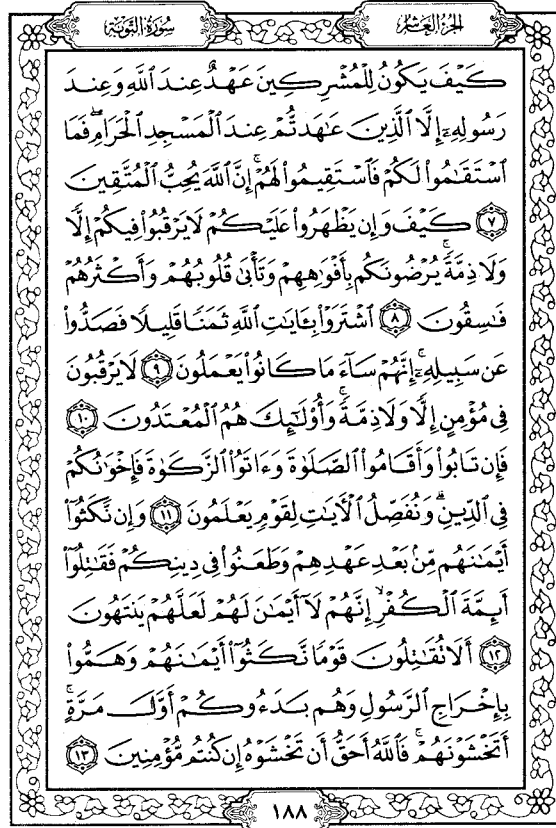 سُورَةُ التَّوْبَةِ
الجُزْءُ العَاشِرُ
كَيْفَ يَكُونُ لِلْمُشْرِكِينَ عَهْدٌ عِندَ ٱللَّهِ وَعِندَ
رَسُولِهِۦٓ إِلَّا ٱلَّذِينَ عَٰهَدتُّمْ عِندَ ٱلْمَسْجِدِ ٱلْحَرَامِۖ فَمَا
ٱسْتَقَٰمُوا۟ لَكُمْ فَٱسْتَقِيمُوا۟ لَهُمْۚ إِنَّ ٱللَّهَ يُحِبُّ ٱلْمُتَّقِينَ
﴿٧﴾ كَيْفَ وَإِن يَظْهَرُوا۟ عَلَيْكُمْ لَا يَرْقُبُوا۟ فِيكُمْ إِلًّا
وَلَا ذِمَّةًۚ يُرْضُونَكُم بِأَفْوَٰهِهِمْ وَتَأْبَىٰ قُلُوبُهُمْ وَأَكْثَرُهُمْ
فَٰسِقُونَ ﴿٨﴾ ٱشْتَرَوْا۟ بِـَٔايَٰتِ ٱللَّهِ ثَمَنًا قَلِيلًا فَصَدُّوا۟
عَن سَبِيلِهِۦٓۚ إِنَّهُمْ سَآءَ مَا كَانُوا۟ يَعْمَلُونَ ﴿٩﴾ لَا يَرْقُبُونَ
فِى مُؤْمِنٍ إِلًّا وَلَا ذِمَّةًۚ وَأُو۟لَٰٓئِكَ هُمُ ٱلْمُعْتَدُونَ ﴿١٠﴾
فَإِن تَابُوا۟ وَأَقَامُوا۟ ٱلصَّلَوٰةَ وَءَاتَوُا۟ ٱلزَّكَوٰةَ فَإِخْوَٰنُكُمْ
فِى ٱلدِّينِۗ وَنُفَصِّلُ ٱلْءَايَٰتِ لِقَوْمٍ يَعْلَمُونَ ﴿١١﴾ وَإِن نَّكَثُوٓا۟
أَيْمَٰنَهُم مِّنۢ بَعْدِ عَهْدِهِمْ وَطَعَنُوا۟ فِى دِينِكُمْ فَقَٰتِلُوٓا۟
أَئِمَّةَ ٱلْكُفْرِۙ إِنَّهُمْ لَآ أَيْمَٰنَ لَهُمْ لَعَلَّهُمْ يَنتَهُونَ
﴿١٢﴾ أَلَا تُقَٰتِلُونَ قَوْمًا نَّكَثُوٓا۟ أَيْمَٰنَهُمْ وَهَمُّوا۟
بِإِخْرَاجِ ٱلرَّسُولِ وَهُم بَدَءُوكُمْ أَوَّلَ مَرَّةٍۚ
أَتَخْشَوْنَهُمْۚ فَٱللَّهُ أَحَقُّ أَن تَخْشَوْهُ إِن كُنتُم مُّؤْمِنِينَ ﴿١٣﴾
١٨٨